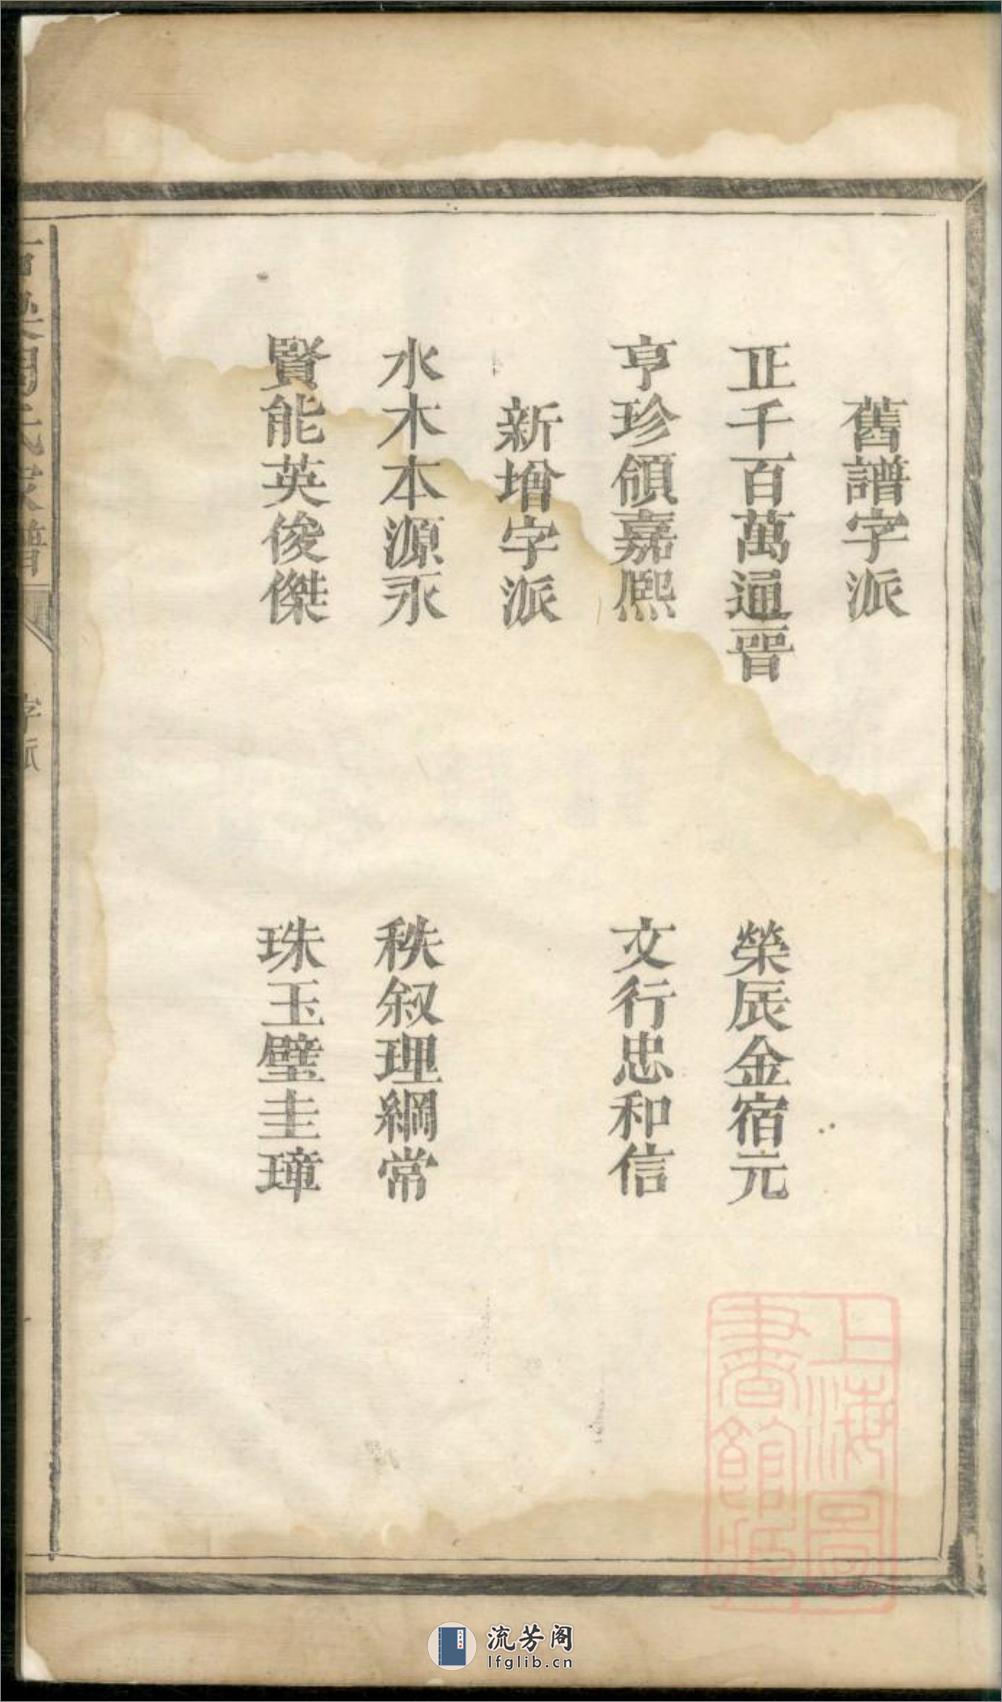 舊譜字派
正千百萬通晋 榮辰金宿元
亨珍頎嘉熙 文行忠和信
新增字派
水木本源永 秩叙理綱常
賢能英俊傑 珠玉璧圭璋
氏家譜
字派
上海圖書館藏
流芳阁
lfglib.cn